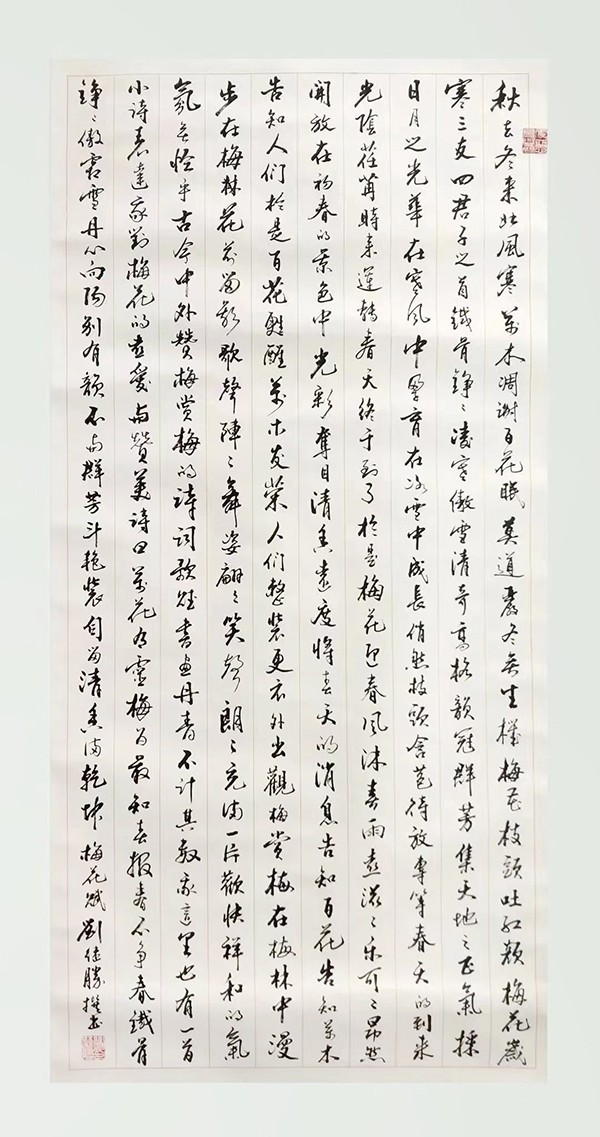 秋去冬来北風寒萬木凋謝百花眠莫道嚴冬無生機梅花枝頭吐紅顏梅花歲
寒三友四君子之首鐵骨錚々凌寒傲雪清奇高格韻冠群芳集天地之正氣採
日月之光華在寒風中孕育在冰雪中成長俏然枝頭含苞待放専等春天的到来
光陰荏苒時来運轉春天終于到了於是梅花迎春風沐春雨喜滋々樂可々昂然
開放在初春的景色中光彩奪目清香遠度將春天的消息告知百花告知萬木
告知人们於是百花甦醒萬木发榮人们整装更衣外出觀梅赏梅在梅林中漫
步在梅林花前留影歌聲陣々舞姿翩々笑聲朗々充满一片歡快祥和的氣
氛無怪乎古今中外赞梅赏梅的詩詞歌賦書画丹青不计其数我這里也有一首
小詩表達我對梅花的喜愛与赞美詩曰萬花有靈梅为最知春报春不争春鐵骨
錚々傲霜雪丹心向陽别有韻不与群芳斗艳装自留清香满乾坤梅花赋劉佳勝撰书